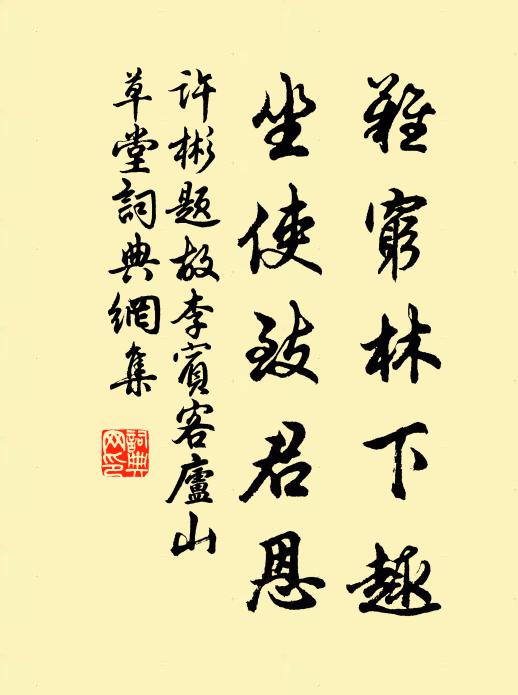 難窮林下趣
坐使致君恩
許彬題故李賓客廬山
草堂詞典網集
詞典網印